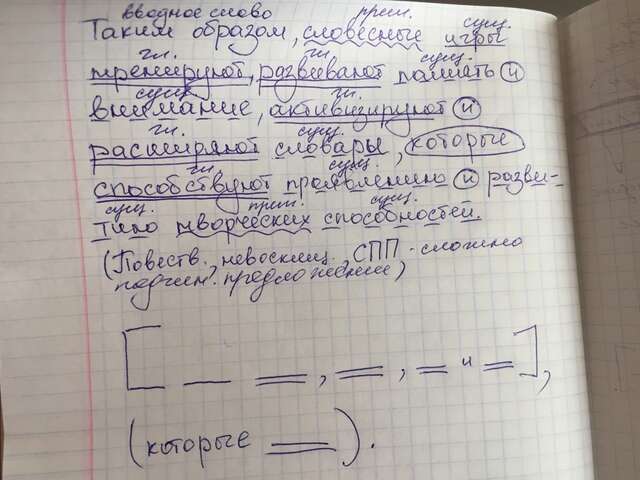 вводное слово прил. сущ.
Таким образом, словесные игры
гл. гл. сущ.
тренируют, развивают память и
сущ. гл.
внимание, активизируют и
гл. сущ.
расширяют словарь, которые
гл. сущ.
способствуют проявлению и разви-
сущ. прил. сущ.
тию творческих способностей.
(Повеств., невосклиц., СПП - сложно
подчин. предложение)
и
(которые ).